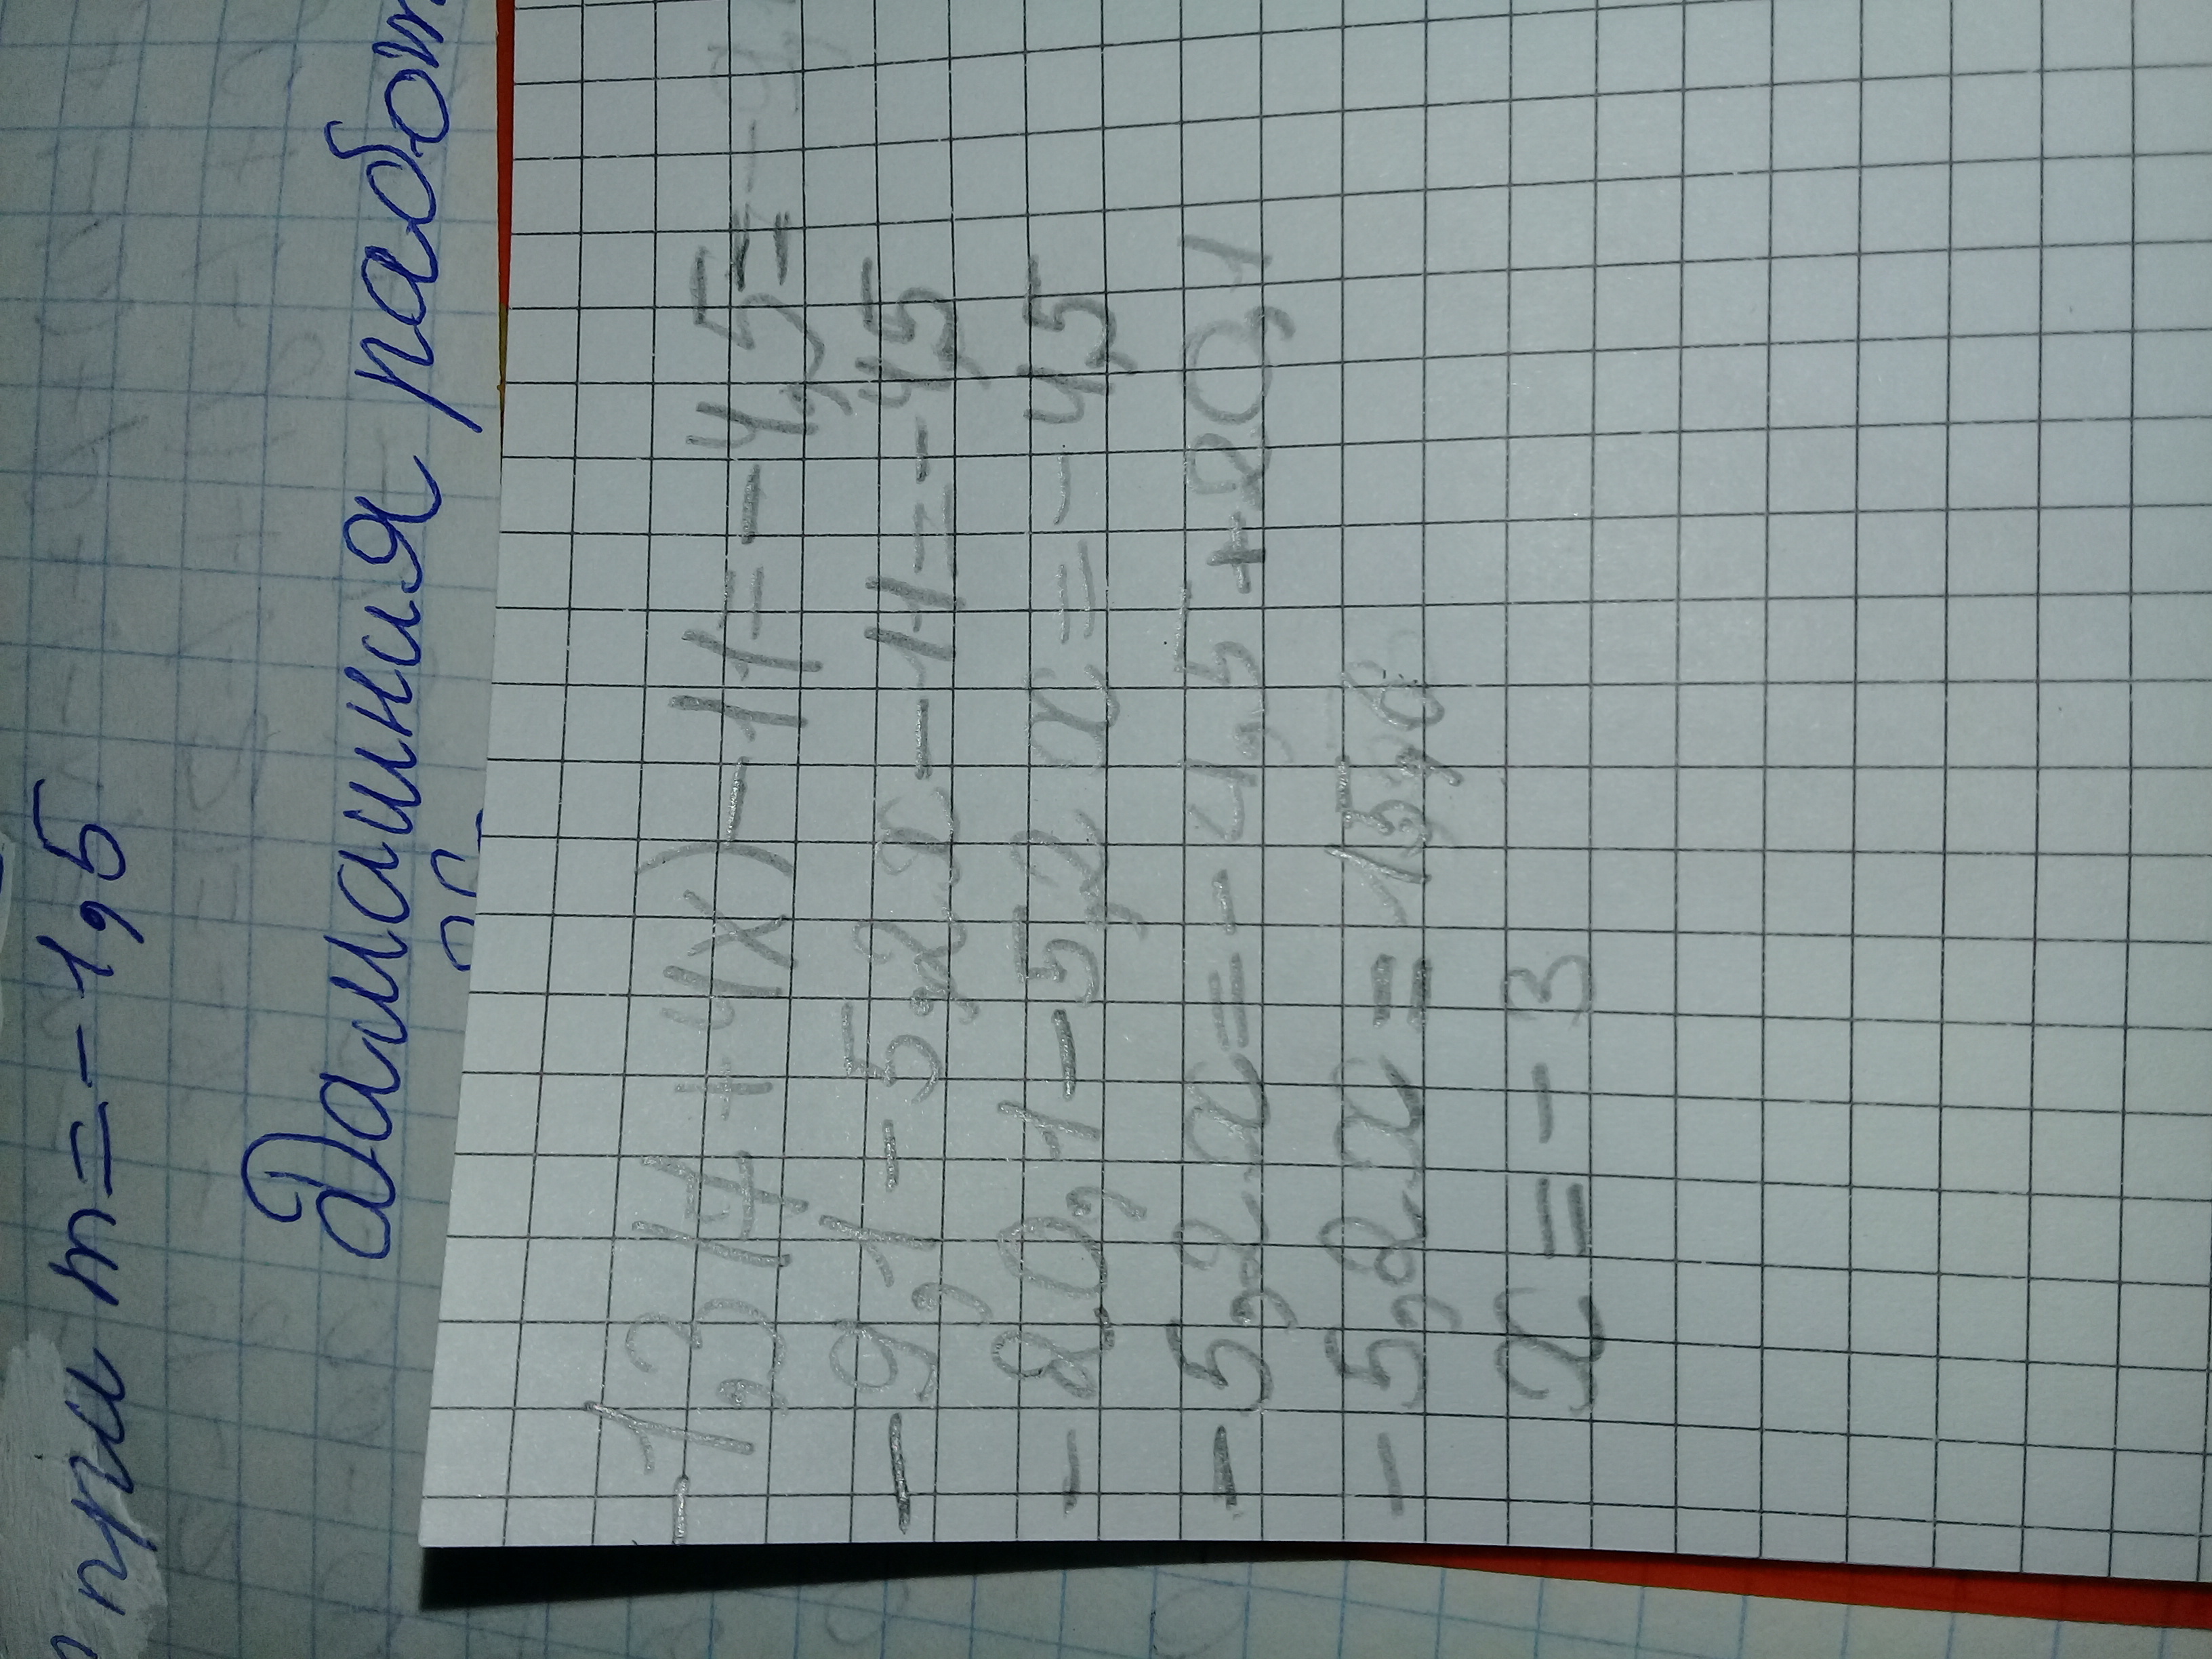 при m = - 1,5
Домашния работ
- 1,3 (7 + 4x) - 11 = - 4,5 =
- 9,1 - 5,2x - 11 = - 4,5
- 20,1 - 5,2x = - 4,5
- 5,2x = - 4,5 + 20,1
- 5,2x = 15,6
x = - 3